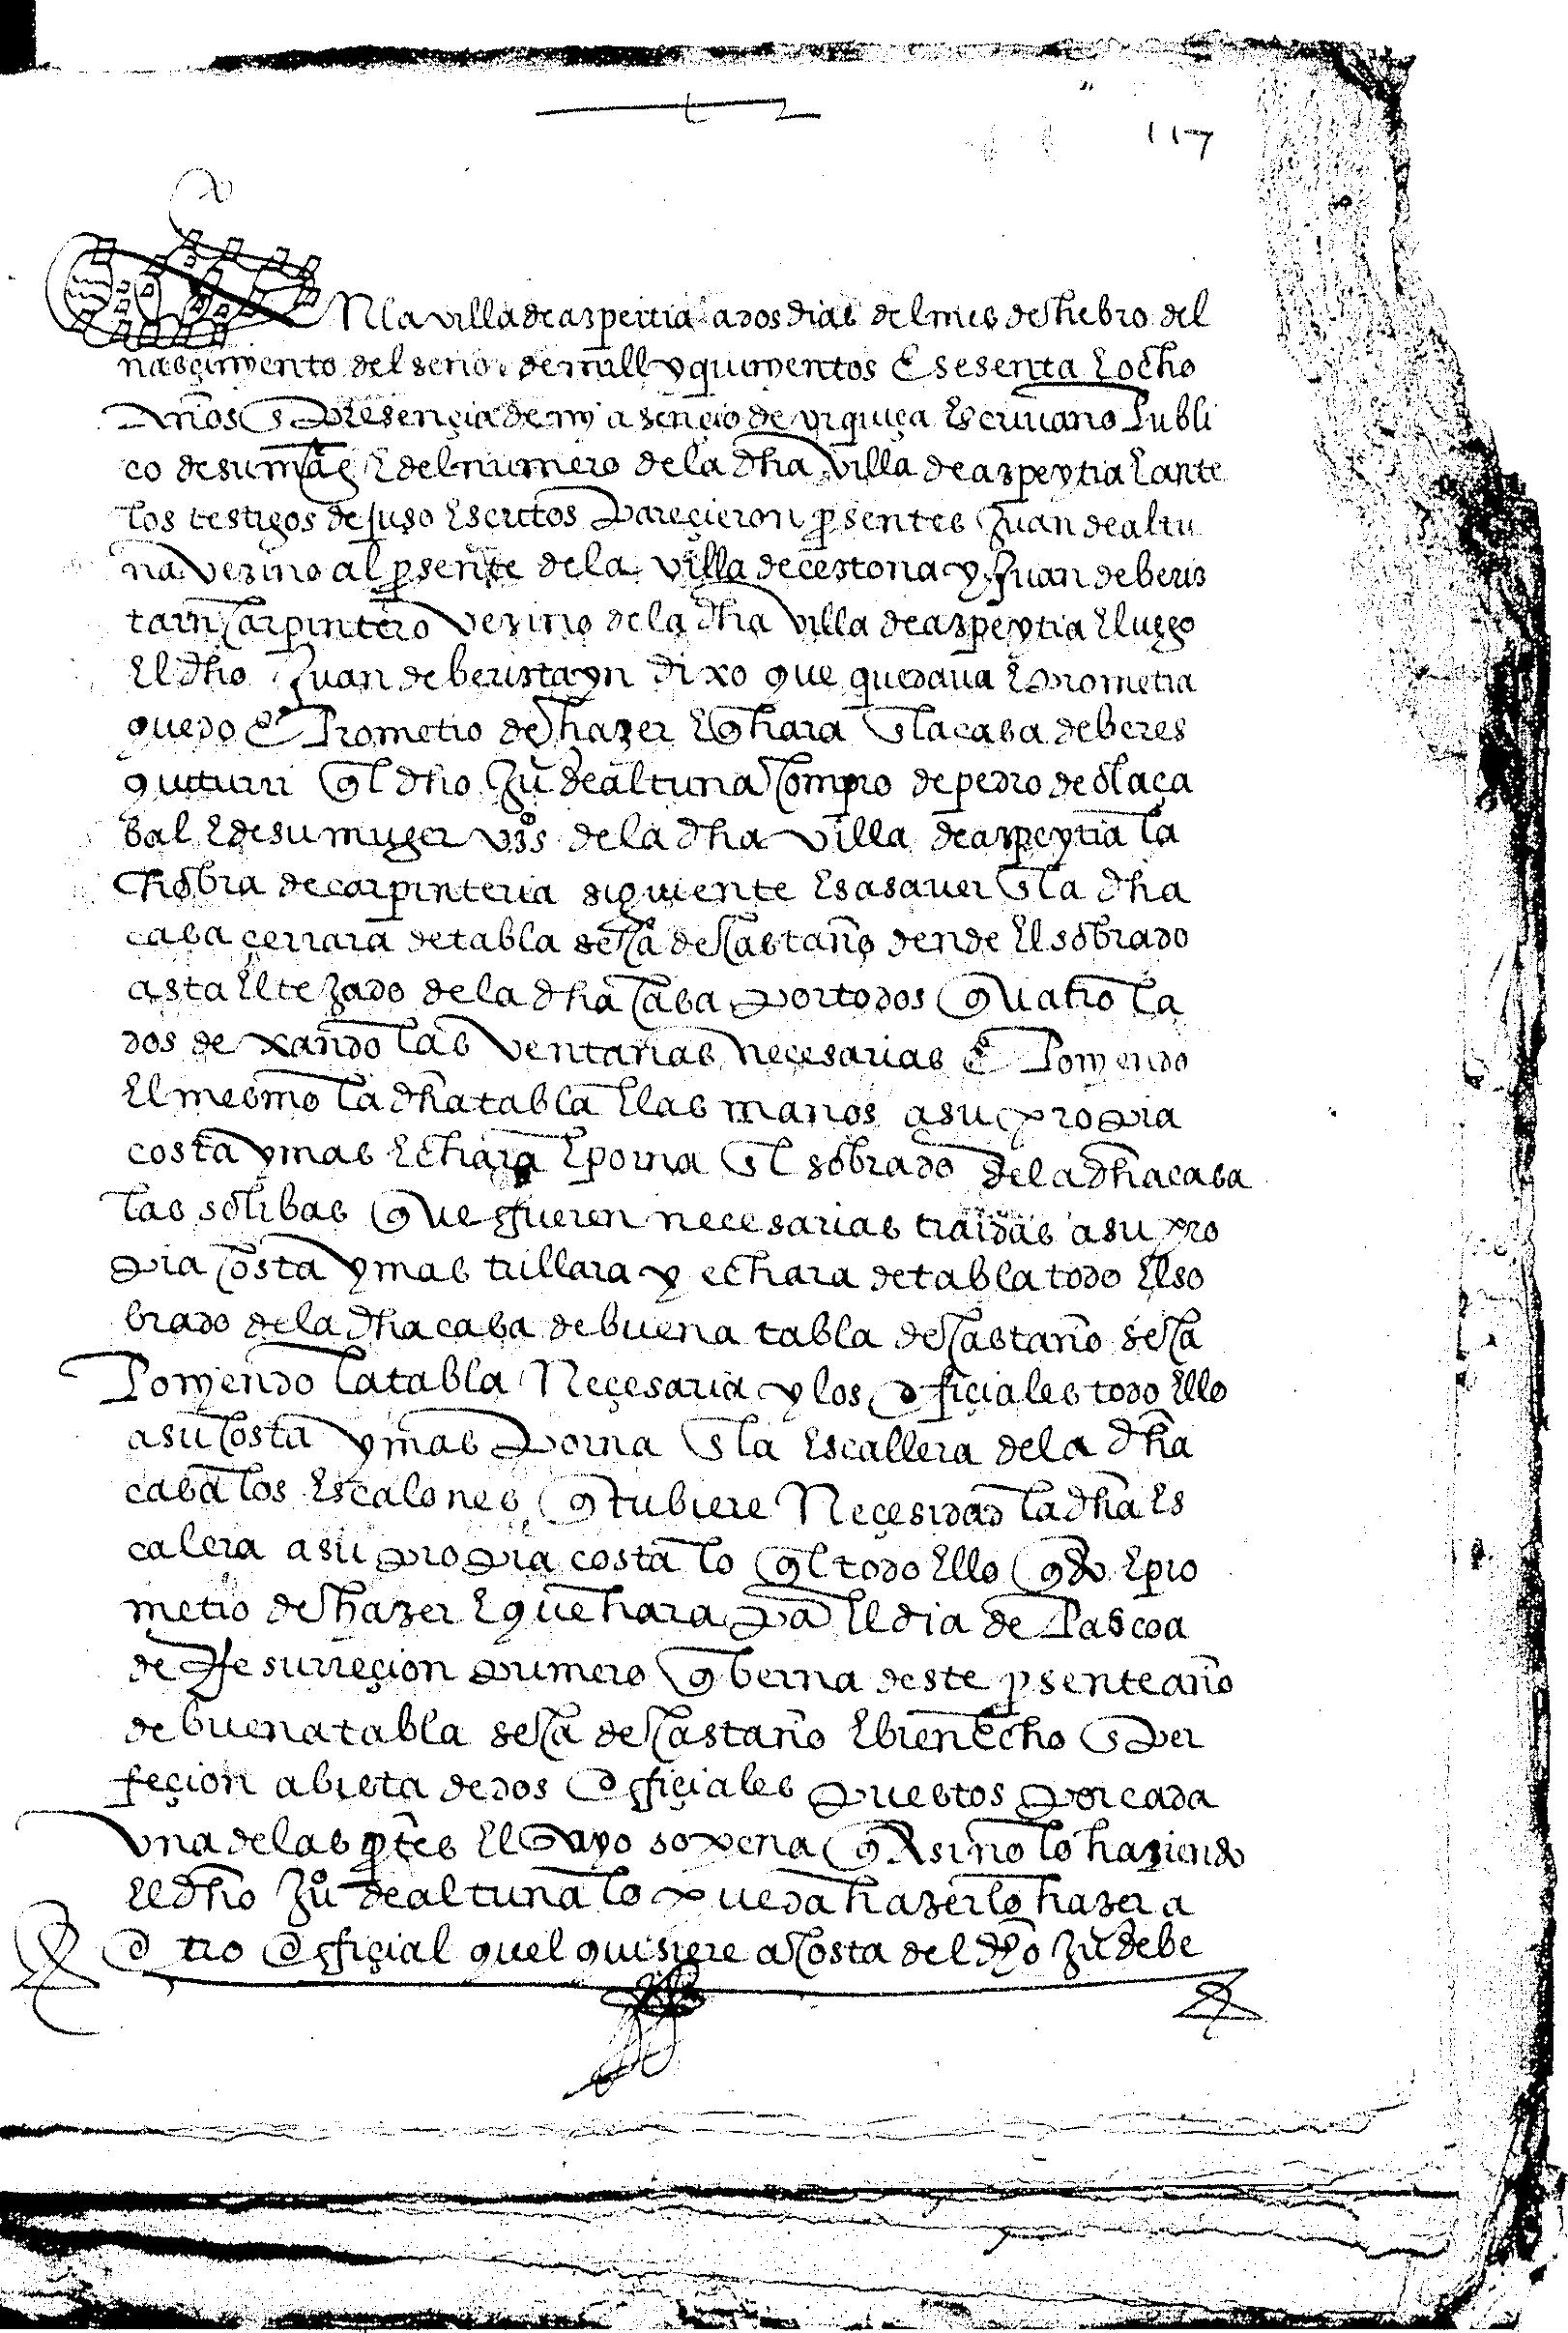 117
En la villa de azpeitia a dos dias del mes de hebro del
nasçimiento del señor de mill y quinientos E sesenta E ocho
Años En Presençia de my asençio de vrquiça Escriuano Publi
co de su mag E del numero de la dha villa de azpeytia E ante
los testigos de juso Escritos Pareçieron psentes Juan de altu
na vezino al psente de la villa de cestona y Juan de beris
tain Carpintero vezino de la dha villa de azpeytia E luego
El dho Juan de beristayn dixo que quedaua E Prometia
quedo E Prometio de hazer E q hara En la casa de beres
quiturri ql dho Ju° de altuna Compro de pedro de olaça
bal E de su muger vzos de la dha villa de azpeytia la
obra de carpinteria siguiente Es a sauer En la dha
casa çerrara de tabla seca de Castaño dende El sobrado
asta El tejado de la dha Casa Por todos quatro la
dos dexando las ventanas neçesarias E Ponyendo
El mesmo la dha tabla E las manos a su propia
costa y mas Echara E porna En El sobrado de la dha casa
las solibas que fueren necesarias traidas a su pro
pia Costa y mas trillara y echara de tabla todo El so
brado de la dha casa de buena tabla de Castaño seca
Ponyendo la tabla Neçesaria y los ofiçiales todo Ello
a su Costa y mas Porna En la Escallera de la dha
casa los Escalones q tubiere Neçesidad la dha Es
calera a su propia costa lo ql todo Ello qdo E pro
metio de hazer E que hara Pa El dia de Pascoa
de Resurreçion primero q berna deste psente año
de buena tabla seca de Castaño E bien Echo En Per
feçion a bista de dos offiçiales Puestos Por cada
vna de las ptes El suyo so pena q si no lo haziendo
El dho Ju° de altuna lo pueda hazer lo hazer a
otro offiçial quel quisiere a Costa del dho Ju° de be